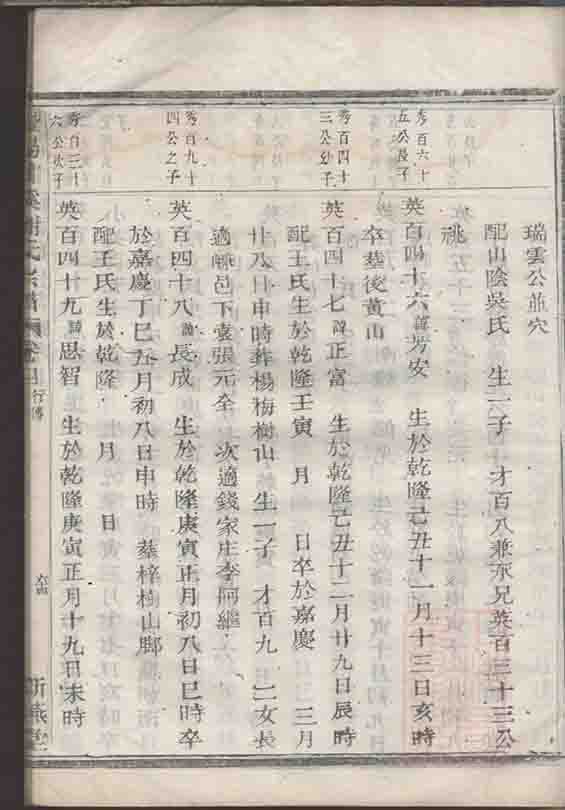 瑞雲公並穴
配山陰吳氏 生一子 才百八兼承兄英百三十三公
祧
秀百六十
五公長子
英百四十六諱芳安 生於乾隆己丑十一月十三日亥時
卒塟後黃山
秀百四十
三公幼子
英百四十七諱正富 生於乾隆己丑十二月廿九日辰時
配王氏生於乾隆壬寅 月 日卒於嘉慶 三月
廿八日申時葬楊梅樹山 生一子 才百九 二女長
適 邑下壹張元全 次適錢家庄李阿繼
秀百九十
四公之子
英百四十八諱長成 生於乾隆庚寅正月初八日巳時卒
於嘉慶丁巳五月初八日申時 葬梓樹山脚
配王氏生於乾隆 月 日
秀百三十
六公次子
英百四十九諱思智 生於乾隆庚寅正月十九日未時
氏宗譜 卷 行傳